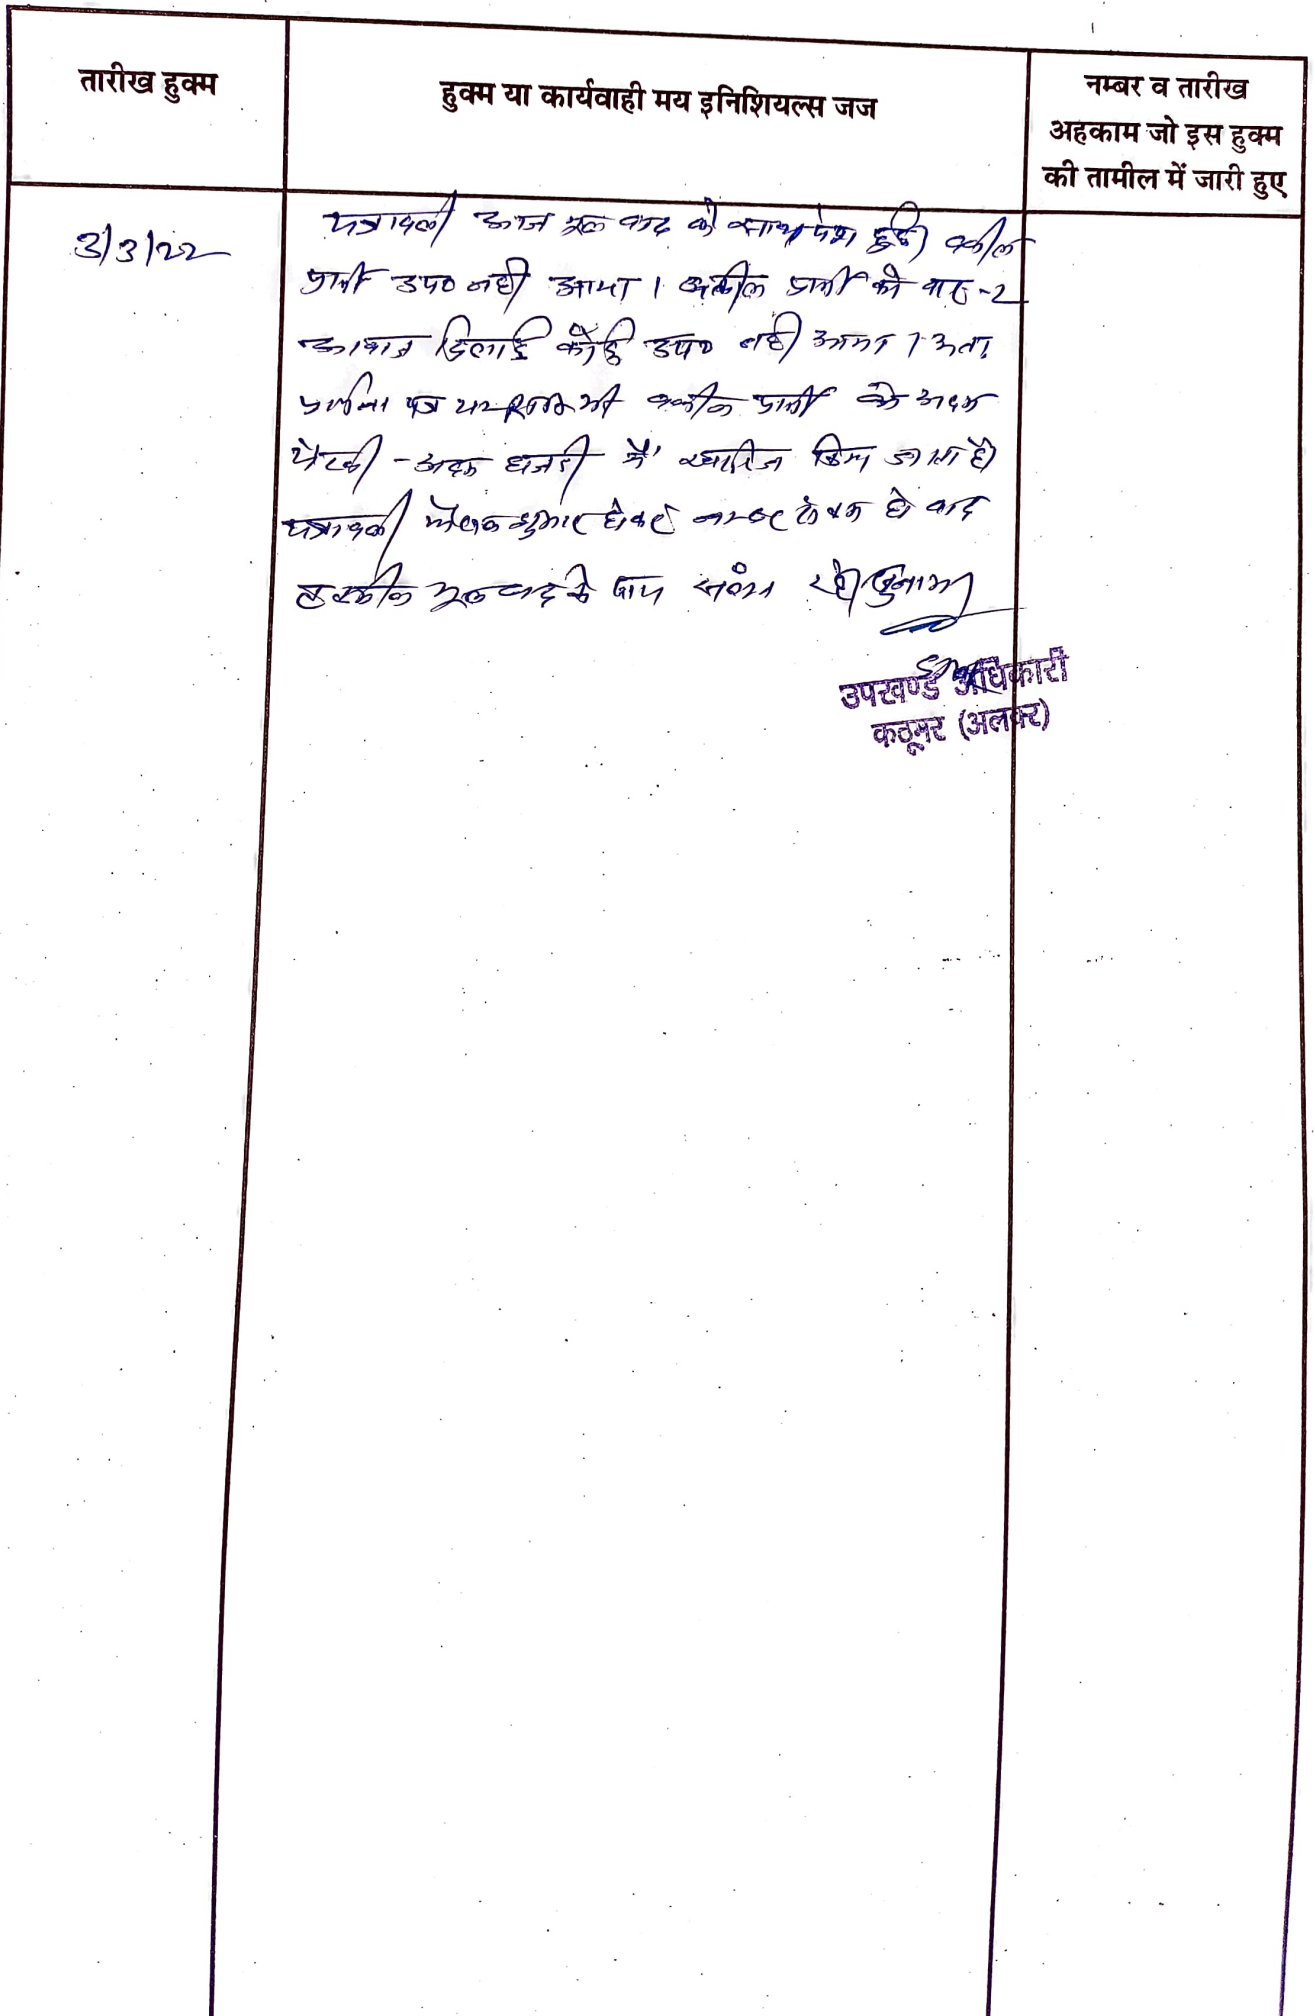 तारीख हुक्म
हुक्म या कार्यवाही मय इनिशियल्स जज
नम्बर व तारीख
अहकाम जो इस हुक्म
की तामील में जारी हुए
3/3/22
पत्रावली आज मूल वाद के साथ पेश हुई। वकील
प्रार्थी उप० नही आया। वकील प्रार्थी को बार-2
आवाज दिलाई कोई उप० नही आया। अतः
प्रार्थना पत्र वकील प्रार्थी के अदम
पैरवी - अदम हाजरी में खारिज किया जाता है।
पत्रावली फैसल शुमार होकर नम्बर से कम हो बाद
तकमील मूल वाद के साथ रहे।
उपखण्ड अधिकारी
कठूमर (अलवर)